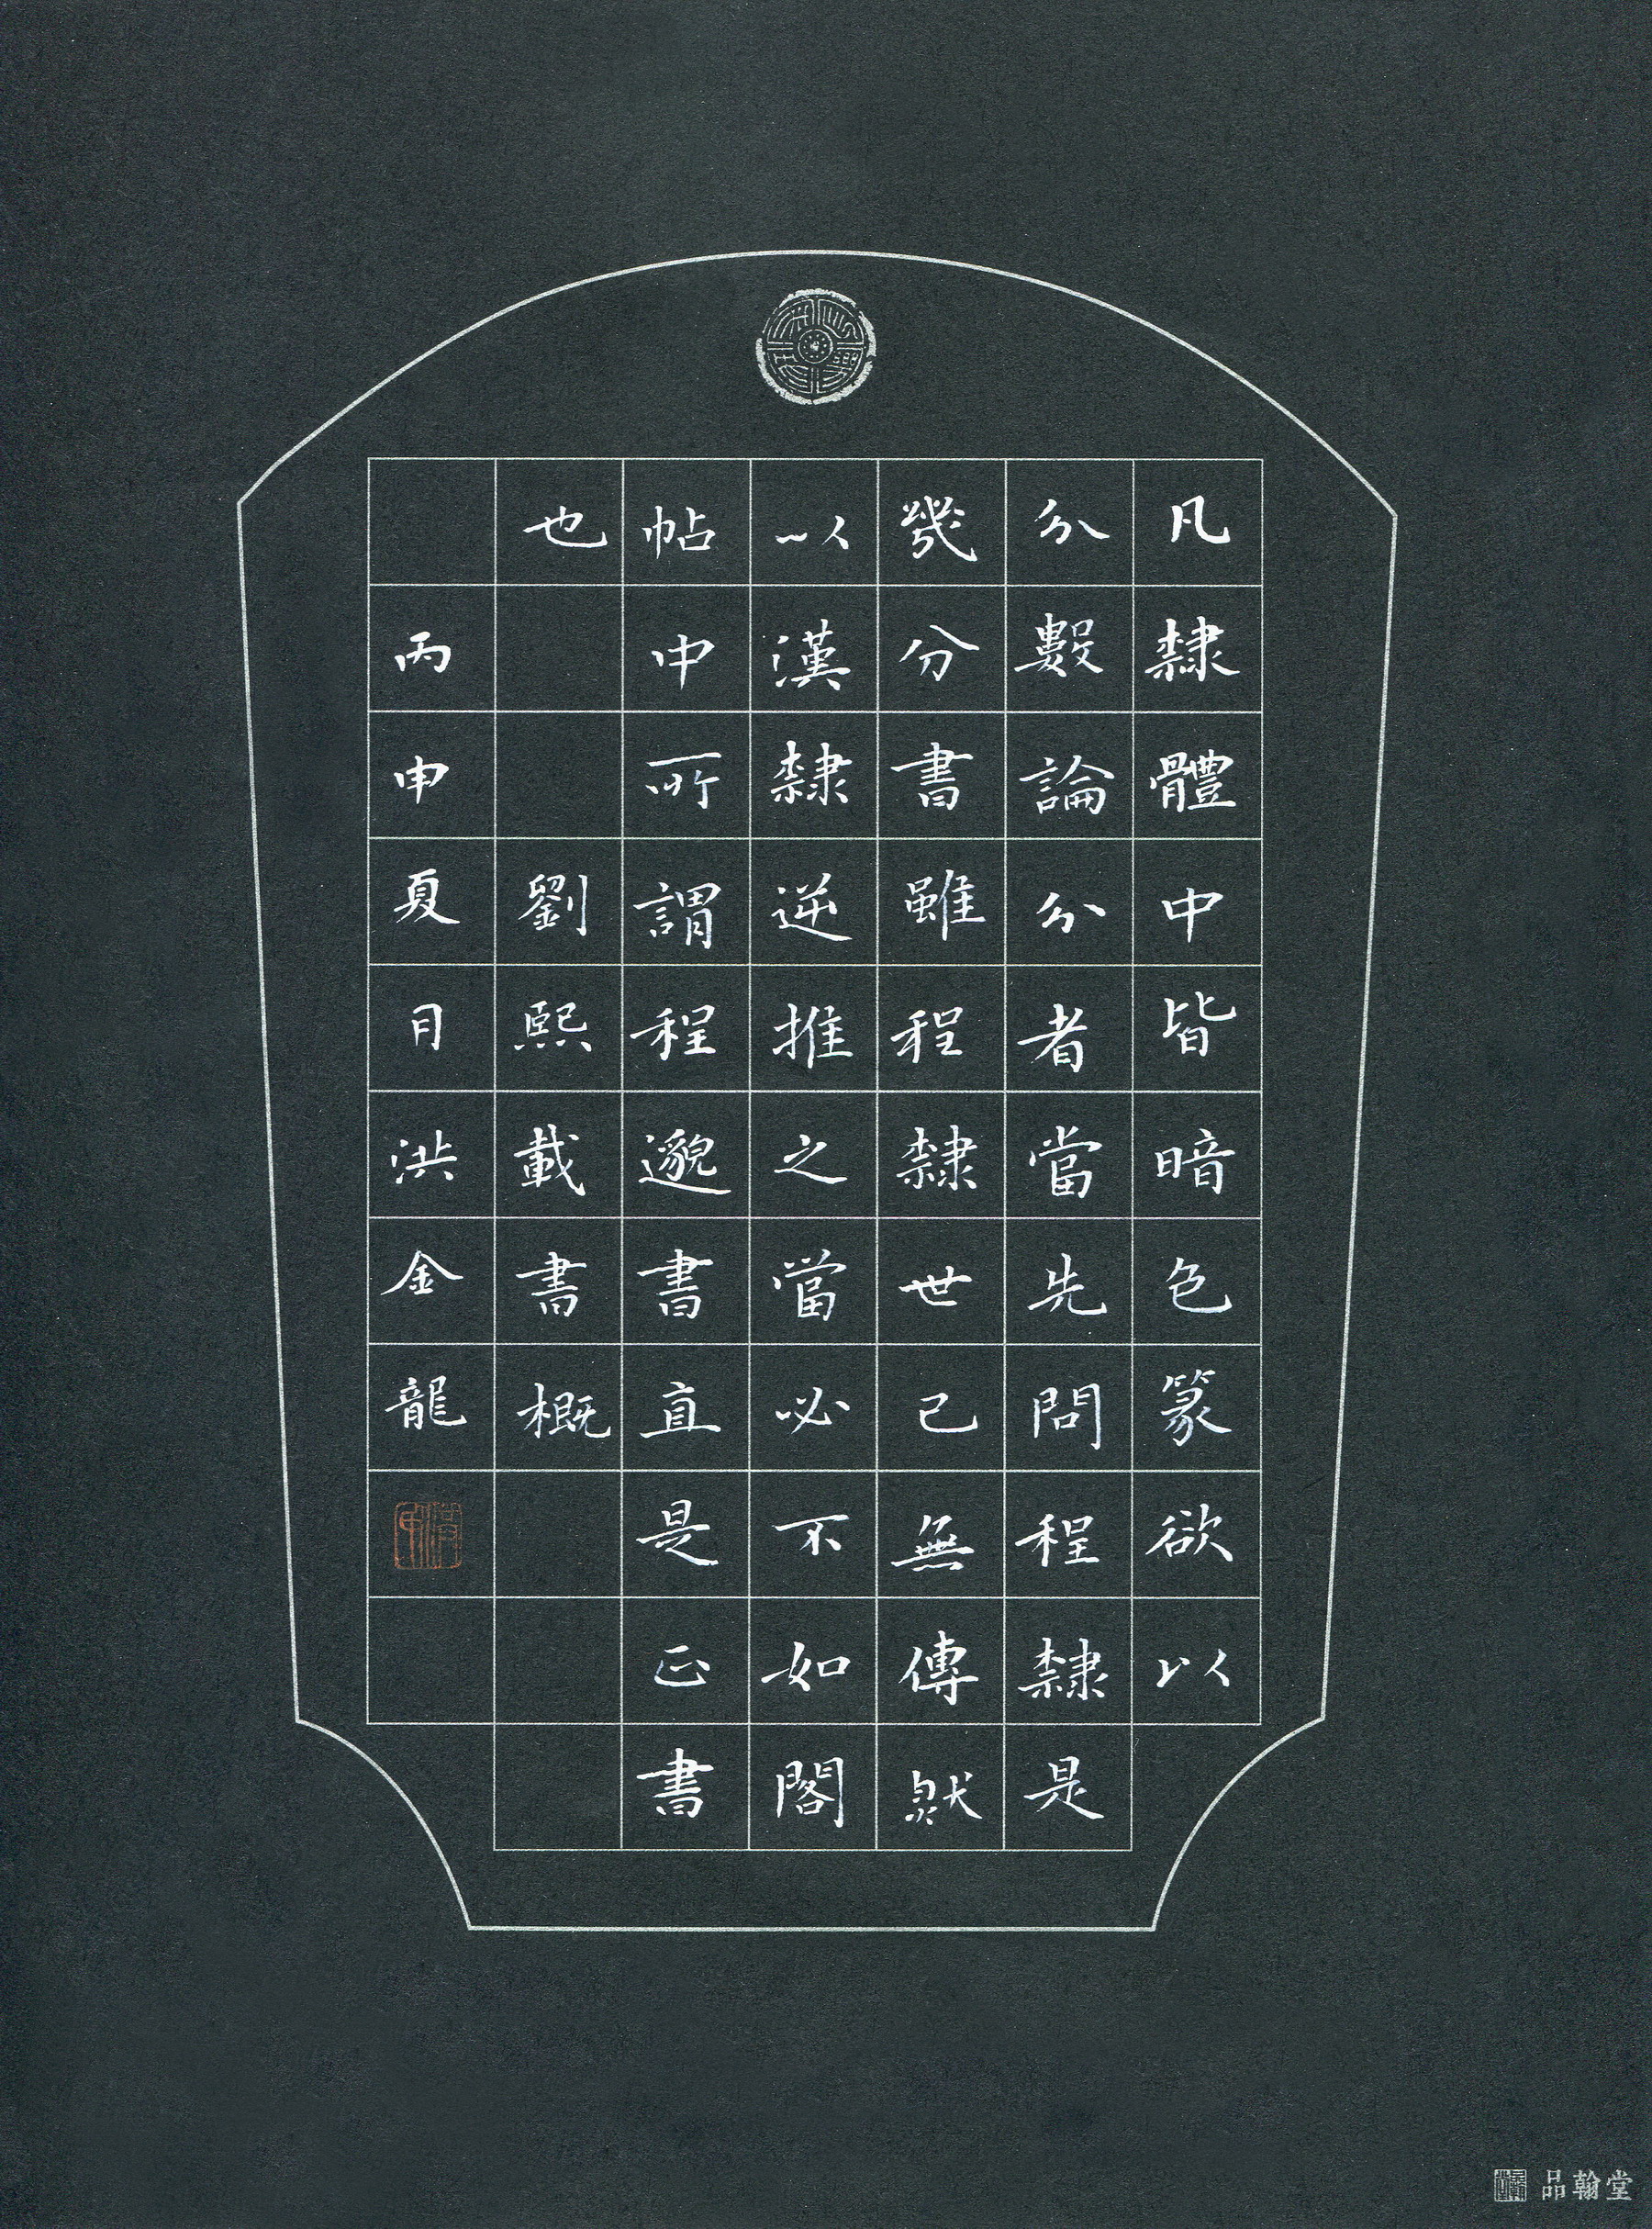 凡隸體中皆暗色篆欲以
分數論分者當先問程隸是
幾分書雖程隸世已無傳然
以漢隸逆推之當必不如閣
帖中所謂程邈書直是正書
也劉熙載書概
丙申夏月洪金龍
品翰堂